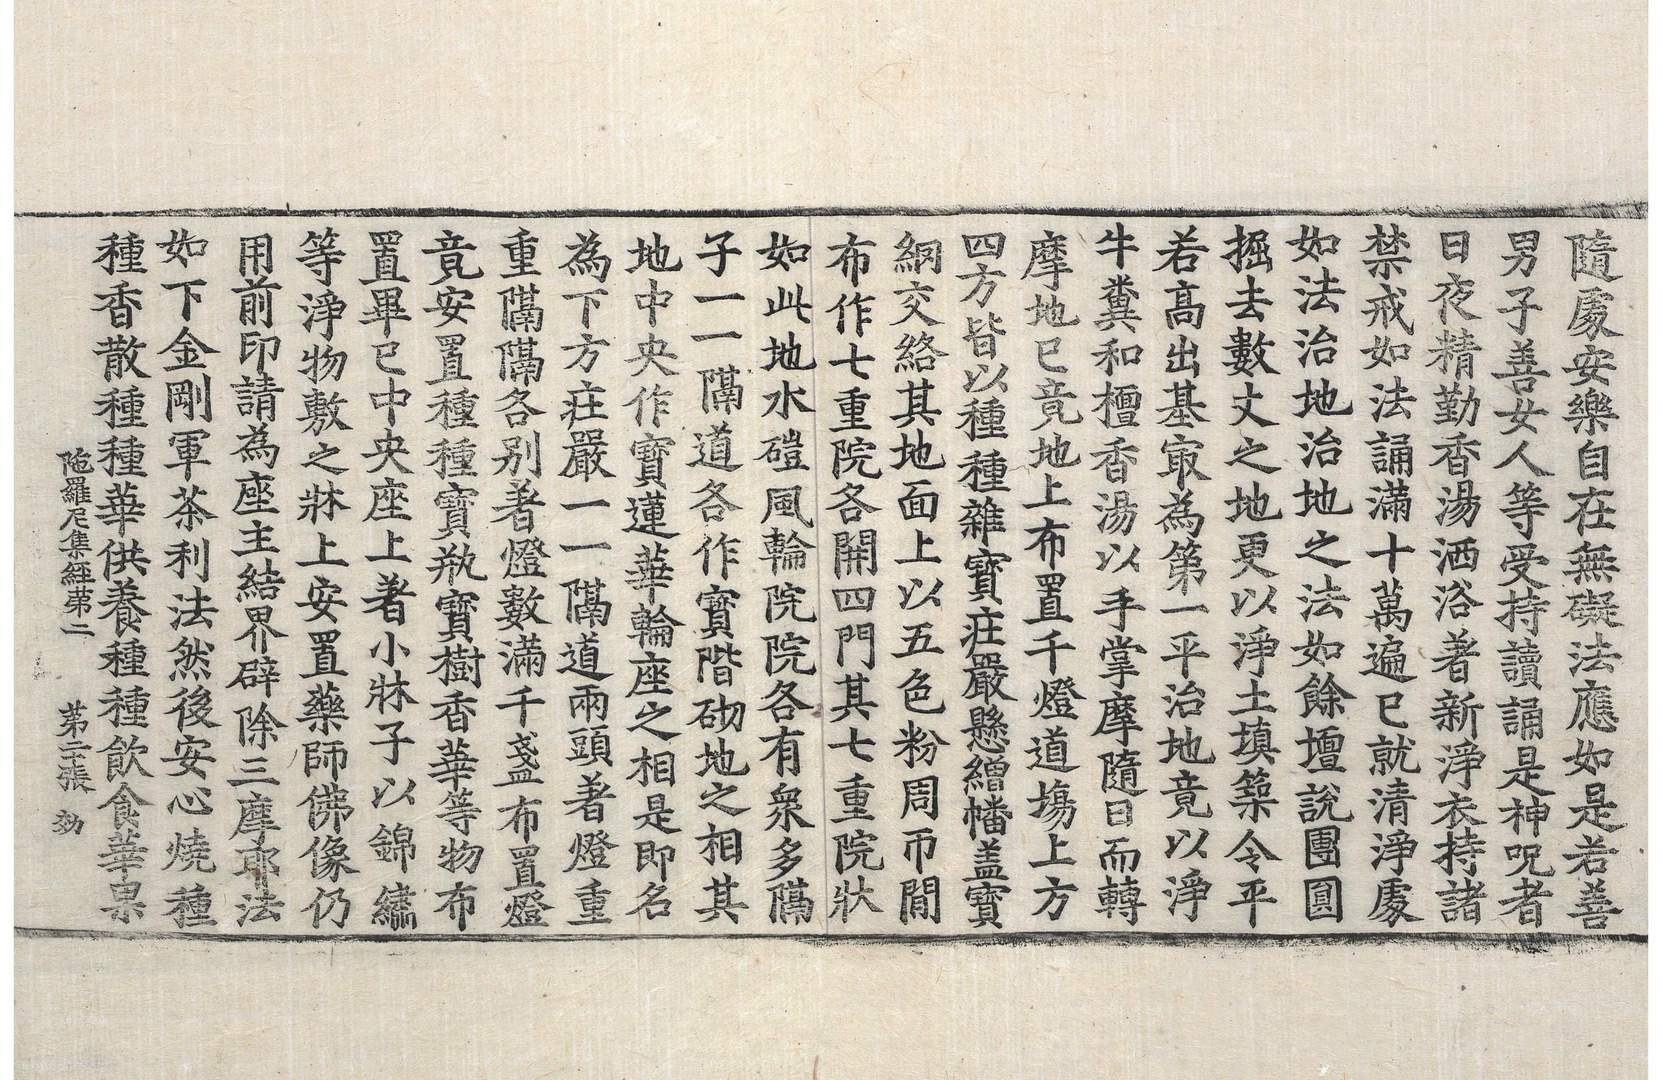 隨處安樂自在無礙法應如是若善
男子善女人等受持讀誦是神呪者
日夜精勤香湯洒浴著新淨衣持諸
禁戒如法誦滿十萬遍已就清淨處
如法治地治地之法如餘壇說團圓
掘去數丈之地更以淨土填築令平
若高出基冣為第一平治地竟以淨
牛糞和檀香湯以手掌摩隨日而轉
摩地已竟地上布置千燈道場上方
四方皆以種種雜寶莊嚴懸繒幡盖寶
網交絡其地面上以五色粉周帀間
布作七重院各開四門其七重院狀
如此地水磑風輪院院各有衆多隔
子一一隔道各作寳階砌地之相其
地中央作寶蓮華輪座之相是即名
為下方莊嚴一一隔道兩頭著燈重
重隔隔各別著燈數滿千盞布置燈
竟安置種種寶瓶寶樹香華等物布
置畢已中央座上著小牀子以錦繡
等淨物敷之牀上安置藥師佛像仍
用前印請為座主結界辟除三摩耶法
如下金剛軍茶利法然後安心燒種
種香散種種華供養種種飲食華果
陁羅尼集經第二　第二張　効